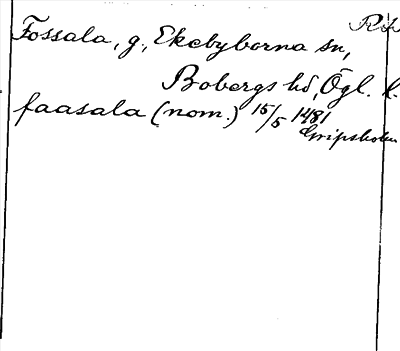 Fossala, g., Ekebyborna sn,
Bobergs hd, Ögl. l.
faasala (nom.) 15/5 1481
Gripsholm